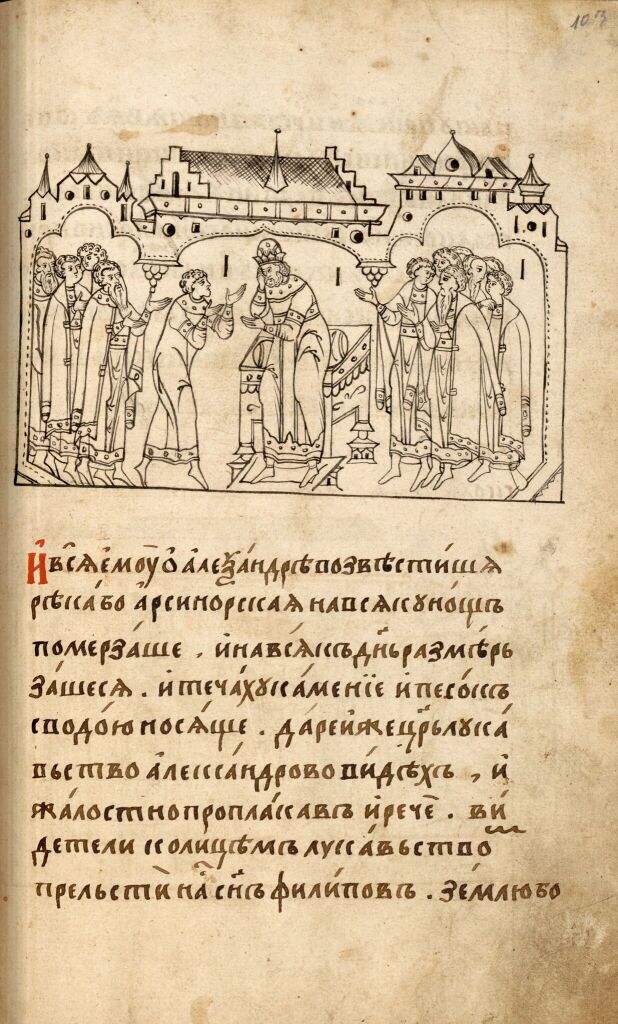 103
И҆ всѧ̀ є҆мꙋ̀ ѡ҆ а҆леѯа́ндрѣ повѣсти́шѧ
рѣка́ бо а҆рсинорскаѧ на всѧкꙋ но́щъ
померза́ше , и҆ на всѧ́къ дн҃ь размѣ́рь
за́шесѧ . и҆ теча́хꙋ ка́менїе и҆ песо́къ
с водо́ю носѧ́ще . да́рей же цр҃ь лꙋка́
вьство а҆леѯа́ндрово ви́дѣхъ , и҆
жа́лостно пропла́кавъ и҆ рече҃ . ви́
дете ли колицѣ́мъ лꙋка́вьством
прельсти́ на҃ сн҃ъ фили́повъ . зе́млю бо